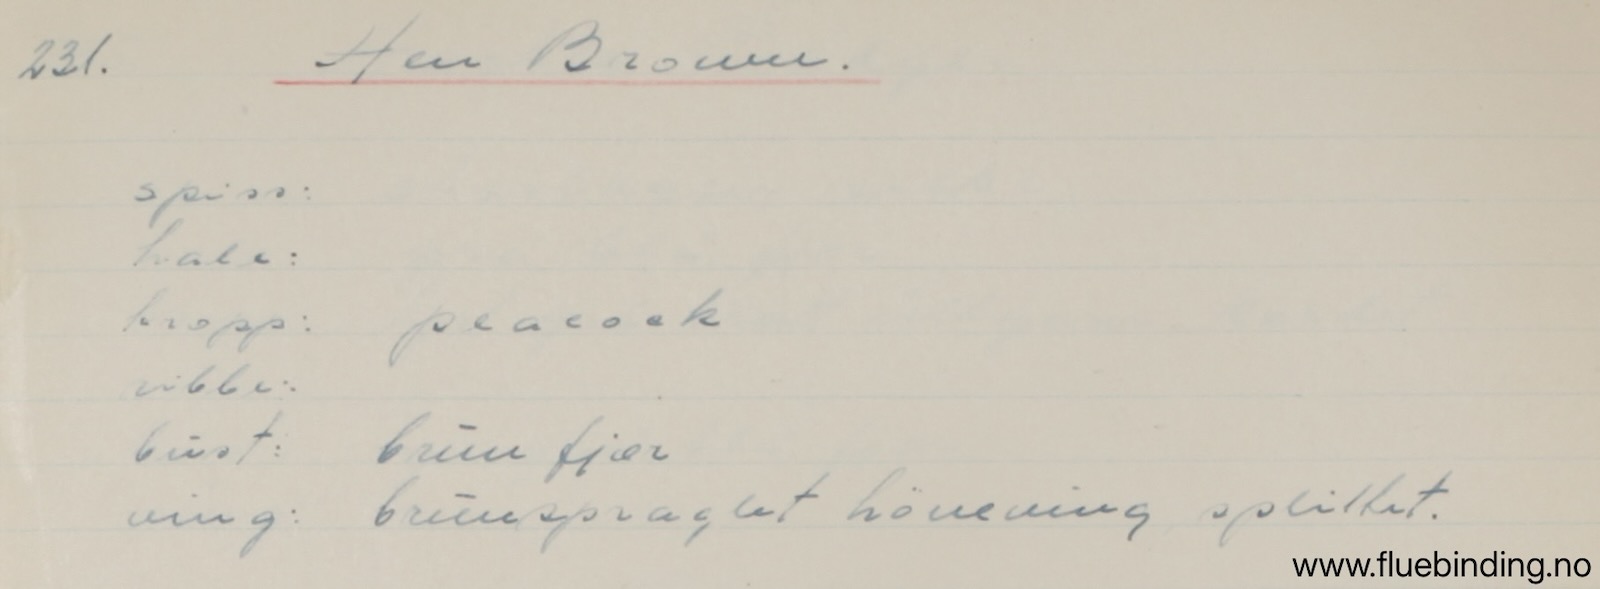 231. Hen Brown.
spiss:
hale:
kropp: peacock
ribbe:
bust: brun fjær
ving: brunspraglet höneving splittet.
www.fluebinding.no